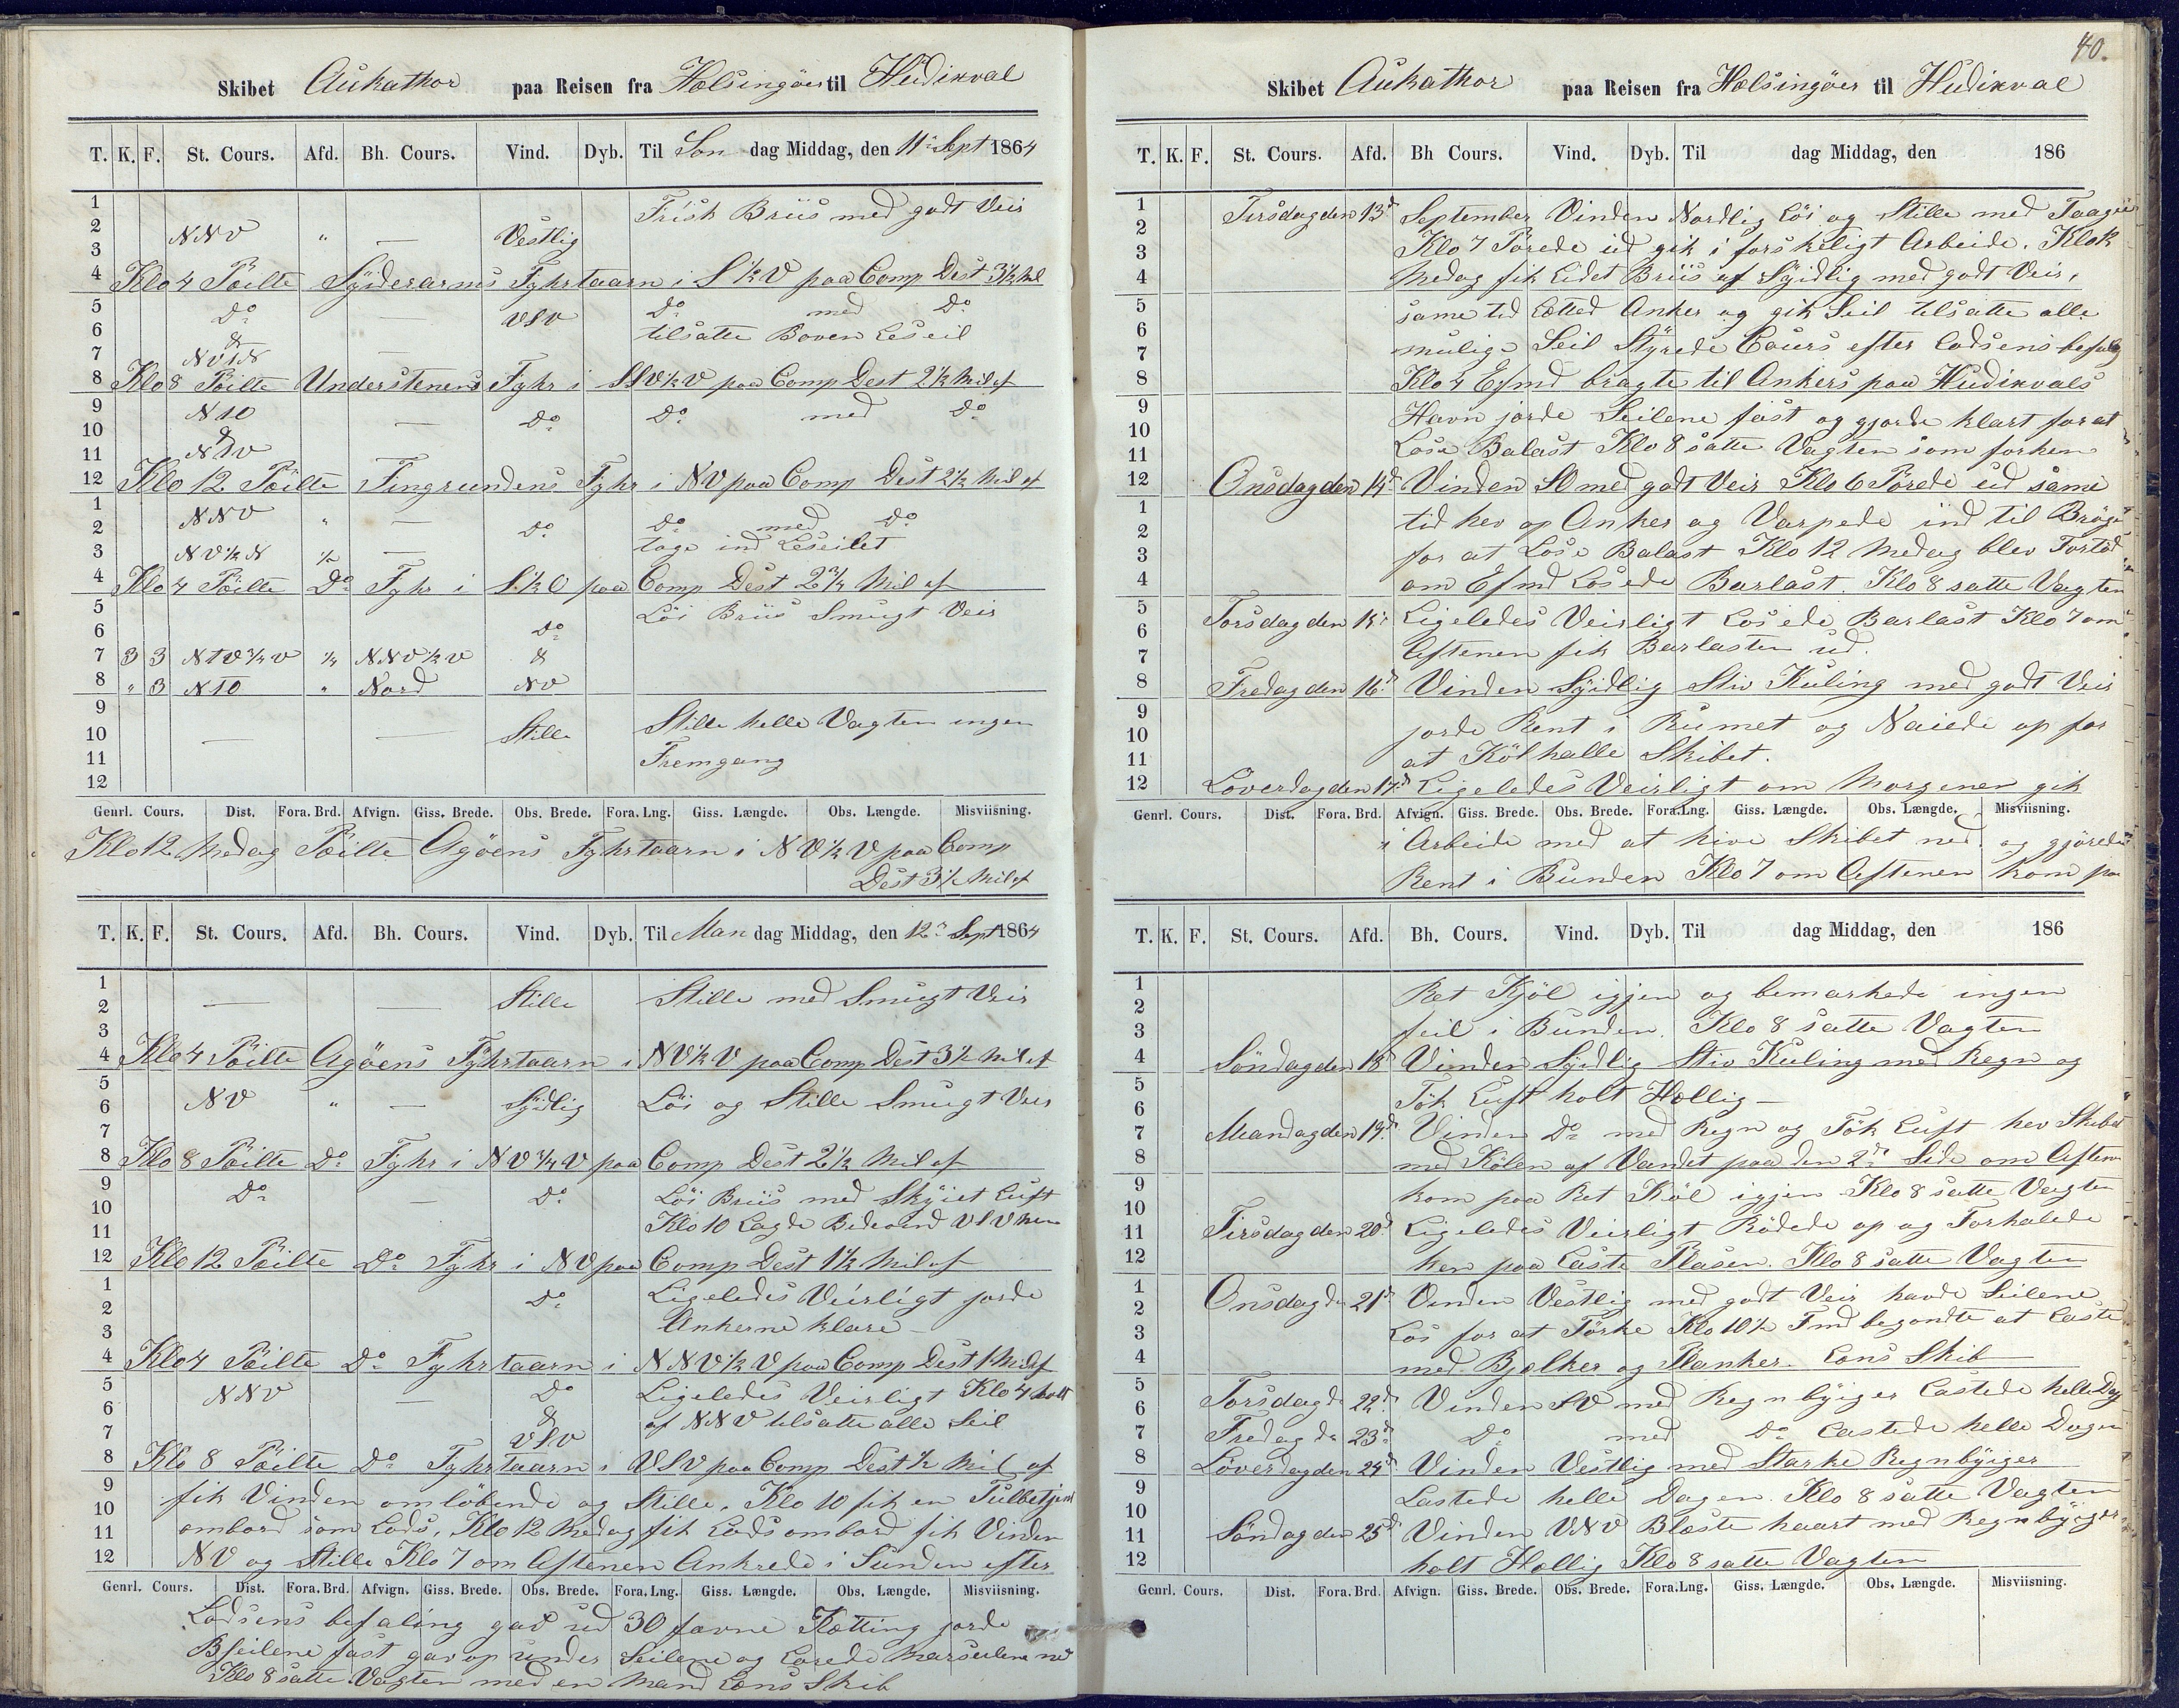 Skibet Aukathor paa Reisen fra Helsingöer til Hudixval
T. K. F. St. Cours. Afd. Bh. Cours. Vind. Dyb. Til Søn dag Middag, den 11te Sept 1864
1 Frisk Briis med godt Veir
2 NNV " — Vestlig
3
4 Klo 4 Pöilte Sÿderarms Fyhrtaarn i S ½ V paa Comp Dest 3½ Mil
5 Do — VSV Do med Do
6 & tilsatte Boven Leseil
7 NV t N —
8 Klo 8 Pöilte Understenens Fyhr i SSV ½ V paa Comp Dest 2½ Mil af
9 N t O — Do Do med Do
10 &
11 N t V
12 Klo 12 Pöilte Fingrundens Fyhr i NV paa Comp Dest 2½ Mil af
1 NNV " — Do Do med Do
2
3 NV ½ N ½ — toge ind Leseilet
4 Klo 4 Pöilte Do Fyhr i S ½ O paa Comp Dest 2¾ Mil af
5 Löi Briis Smugt Veir
6 Do
7 3 3 N t V ¾ V ¼ NNV ½ V &
8 " 3 N t O " Nord NV
9
10 — — Stille Stille helle Vagten ingen
11 Fremgang
12
Genrl. Cours. Dist. Fora. Brd. Afvign. Giss. Brede. Obs. Brede. Fora. Lng. Giss. Længde. Obs. Længde. Misviisning.
Klo 12 Medag Pöilte Agöens Fyhrtaarn i NV ½ V paa Comp
Dest 3½ Mil af
T. K. F. St. Cours. Afd. Bh. Cours. Vind. Dyb. Til Man dag Middag, den 12te Sept 1864
1
2 — — Stille Stille med Smugt Veir
3
4 Klo 4 Pöilte Agöens Fÿhrtaarn i NV ½ V paa Comp Dest 3½ Mil af
5
6 NV " — Sÿdlig Löi og Stille Smugt Veir
7
8 Klo 8 Pöilte Do Fyhr i NV ¾ V paa Comp Dest 2½ Mil af
9 Do — Do Löi Briis med Skÿiet Luft
10 Klo 10 Lagde Bidevind VSV hen
11
12 Klo 12 Pöilte Do Fyhr i NV paa Comp Dest 1½ Mil af
1 Do Ligeledes Veirligt jorde
2 Ankerne klare —
3
4 Klo 4 Pöilte Do Fyhrtaarn i NNV ½ V paa Comp Dest 1 Mil af
5 NNV — Do Ligeledes Veirligt Klo 4 holt
6 & af NNV tilsatte alle Seil
7 VSV
8 Klo 8 Pöilte Do Fyhrtaarn i VSV paa Comp Dest ½ Mil af
9 fik Vinden omlöbende og Stille. Klo 10 fik en
10 ombord som Lods. Klo 12 Medag fik Lods ombord fik Vinden
11
12 NV og Stille Klo 7 om Aftenen Ankrede i Sunden efter
Genrl. Cours. Dist. Fora. Brd. Afvign. Giss. Brede. Obs. Brede. Fora. Lng. Giss. Længde. Obs. Længde. Misviisning.
Lodsens befaling gav ud 30 favne Kætting jorde
Bseilene fast gav op under Seilene og Marseilene ned
Klo 8 satte Vagten med en Mand Læns Skib
40.
Skibet Aukathor paa Reisen fra Helsingöer til Hudixval
T. K. F. St. Cours. Afd. Bh Cours. Vind. Dyb. Til dag Middag, den 186
1 Tirsdag den 13de September Vinden Nordlig Löi og Stille med Taage
2
3 Klo 7 Pörede ud gik i forskeligt Arbeide. Klok
4 Medag fik Lidet Briis af Sÿidlig med godt Veir,
5 same tid Letted Anker og gik Seil tilsatte alle
6
7 mulige Seil Stÿrede Cours efter Lodsens befaling
8 Klo 4 Efmd bragte til Ankers paa Hudixvals
9 Havn jorde Seilene fast og gjorde klart for at
10
11 Lose Balast Klo 8 satte Vagten som forhen
12 Onsdag den 14de Vinden SO med godt Veir Klo 6 Pörede ud same
1
2 tid hev op Anker og Varpede ind til
3 for at Lose Balast Klo 12 Medag blev Fortöd
4 om Efmd Losede Barlast. Klo 8 satte Vagten
5 Torsdag den 15de Ligeledes Veirligt Losede Barlast Klo 7 om
6
7 Aftenen fik Barlasten ud.
8 Fredag den 16de Vinden Sÿidlig Stiv Kuling med godt Veir
9
10 jorde Rent i Rumet og Naiede op for
11 at Kölhalle Skibet.
12 Löverdag den 17de Ligeledes Veirligt om Morgenen gik
Genrl. Cours. Dist. Fora. Brd. Afvign. Giss. Brede. Obs. Brede. Fora. Lng. Giss. Længde. Obs. Længde. Misviisning.
i Arbeide med at hive Skibet ned og gjörede
Rent i Bunden Klo 7 om Aftenen kom paa
T. K. F. St. Cours. Afd. Bh. Cours. Vind. Dyb. Til dag Middag, den 186
1 Ret Kjöl igjen og bemærkede ingen
2
3 feil i Bunden. Klo 8 satte Vagten
4 Söndag den 18de Vinden Sÿidlig Stiv Kuling med Regn og
5
6 Tök Luft holt Hellig —
7 Mandag den 19de Vinden Do med Regn og Tök Luft hev Skibet
8 med Kölen af Vandet paa den 2den Side om Aftenen
9 kom paa Ret Köl igjen Klo 8 satte Vagten
10
11 Tirsdag den 20de Ligeledes Veirligt Rödede op og Forhalede
12 hen paa Laste Plasen. Klo 8 satte Vagten
1 Onsdag den 21de Vinden Vestlig med godt Veir havde Seilene
2
3 Los for at Törke Klo 10½ Fmd begondte at Laste
4 med Bjelker og Planker. Læns Skib
5 Torsdag de 22de Vinden SV med Regnbÿiger Lastede helle Dag
6
7 Fredag de 23de Do med Do Lastede helle Dagen
8 Löverdag den 24de Vinden Vestlig med Starke Regnbÿiger
9 Lastede helle Dagen. Klo 8 satte Vagten
10
11 Söndag den 25de Vinden VNV Bleste haart med Regnbÿiger
12 holt Hellig Klo 8 satte Vagten
Genrl. Cours. Dist. Fora. Brd. Afvign. Giss. Brede. Obs. Brede. Fora. Lng. Giss. Længde. Obs. Længde. Misviisning.